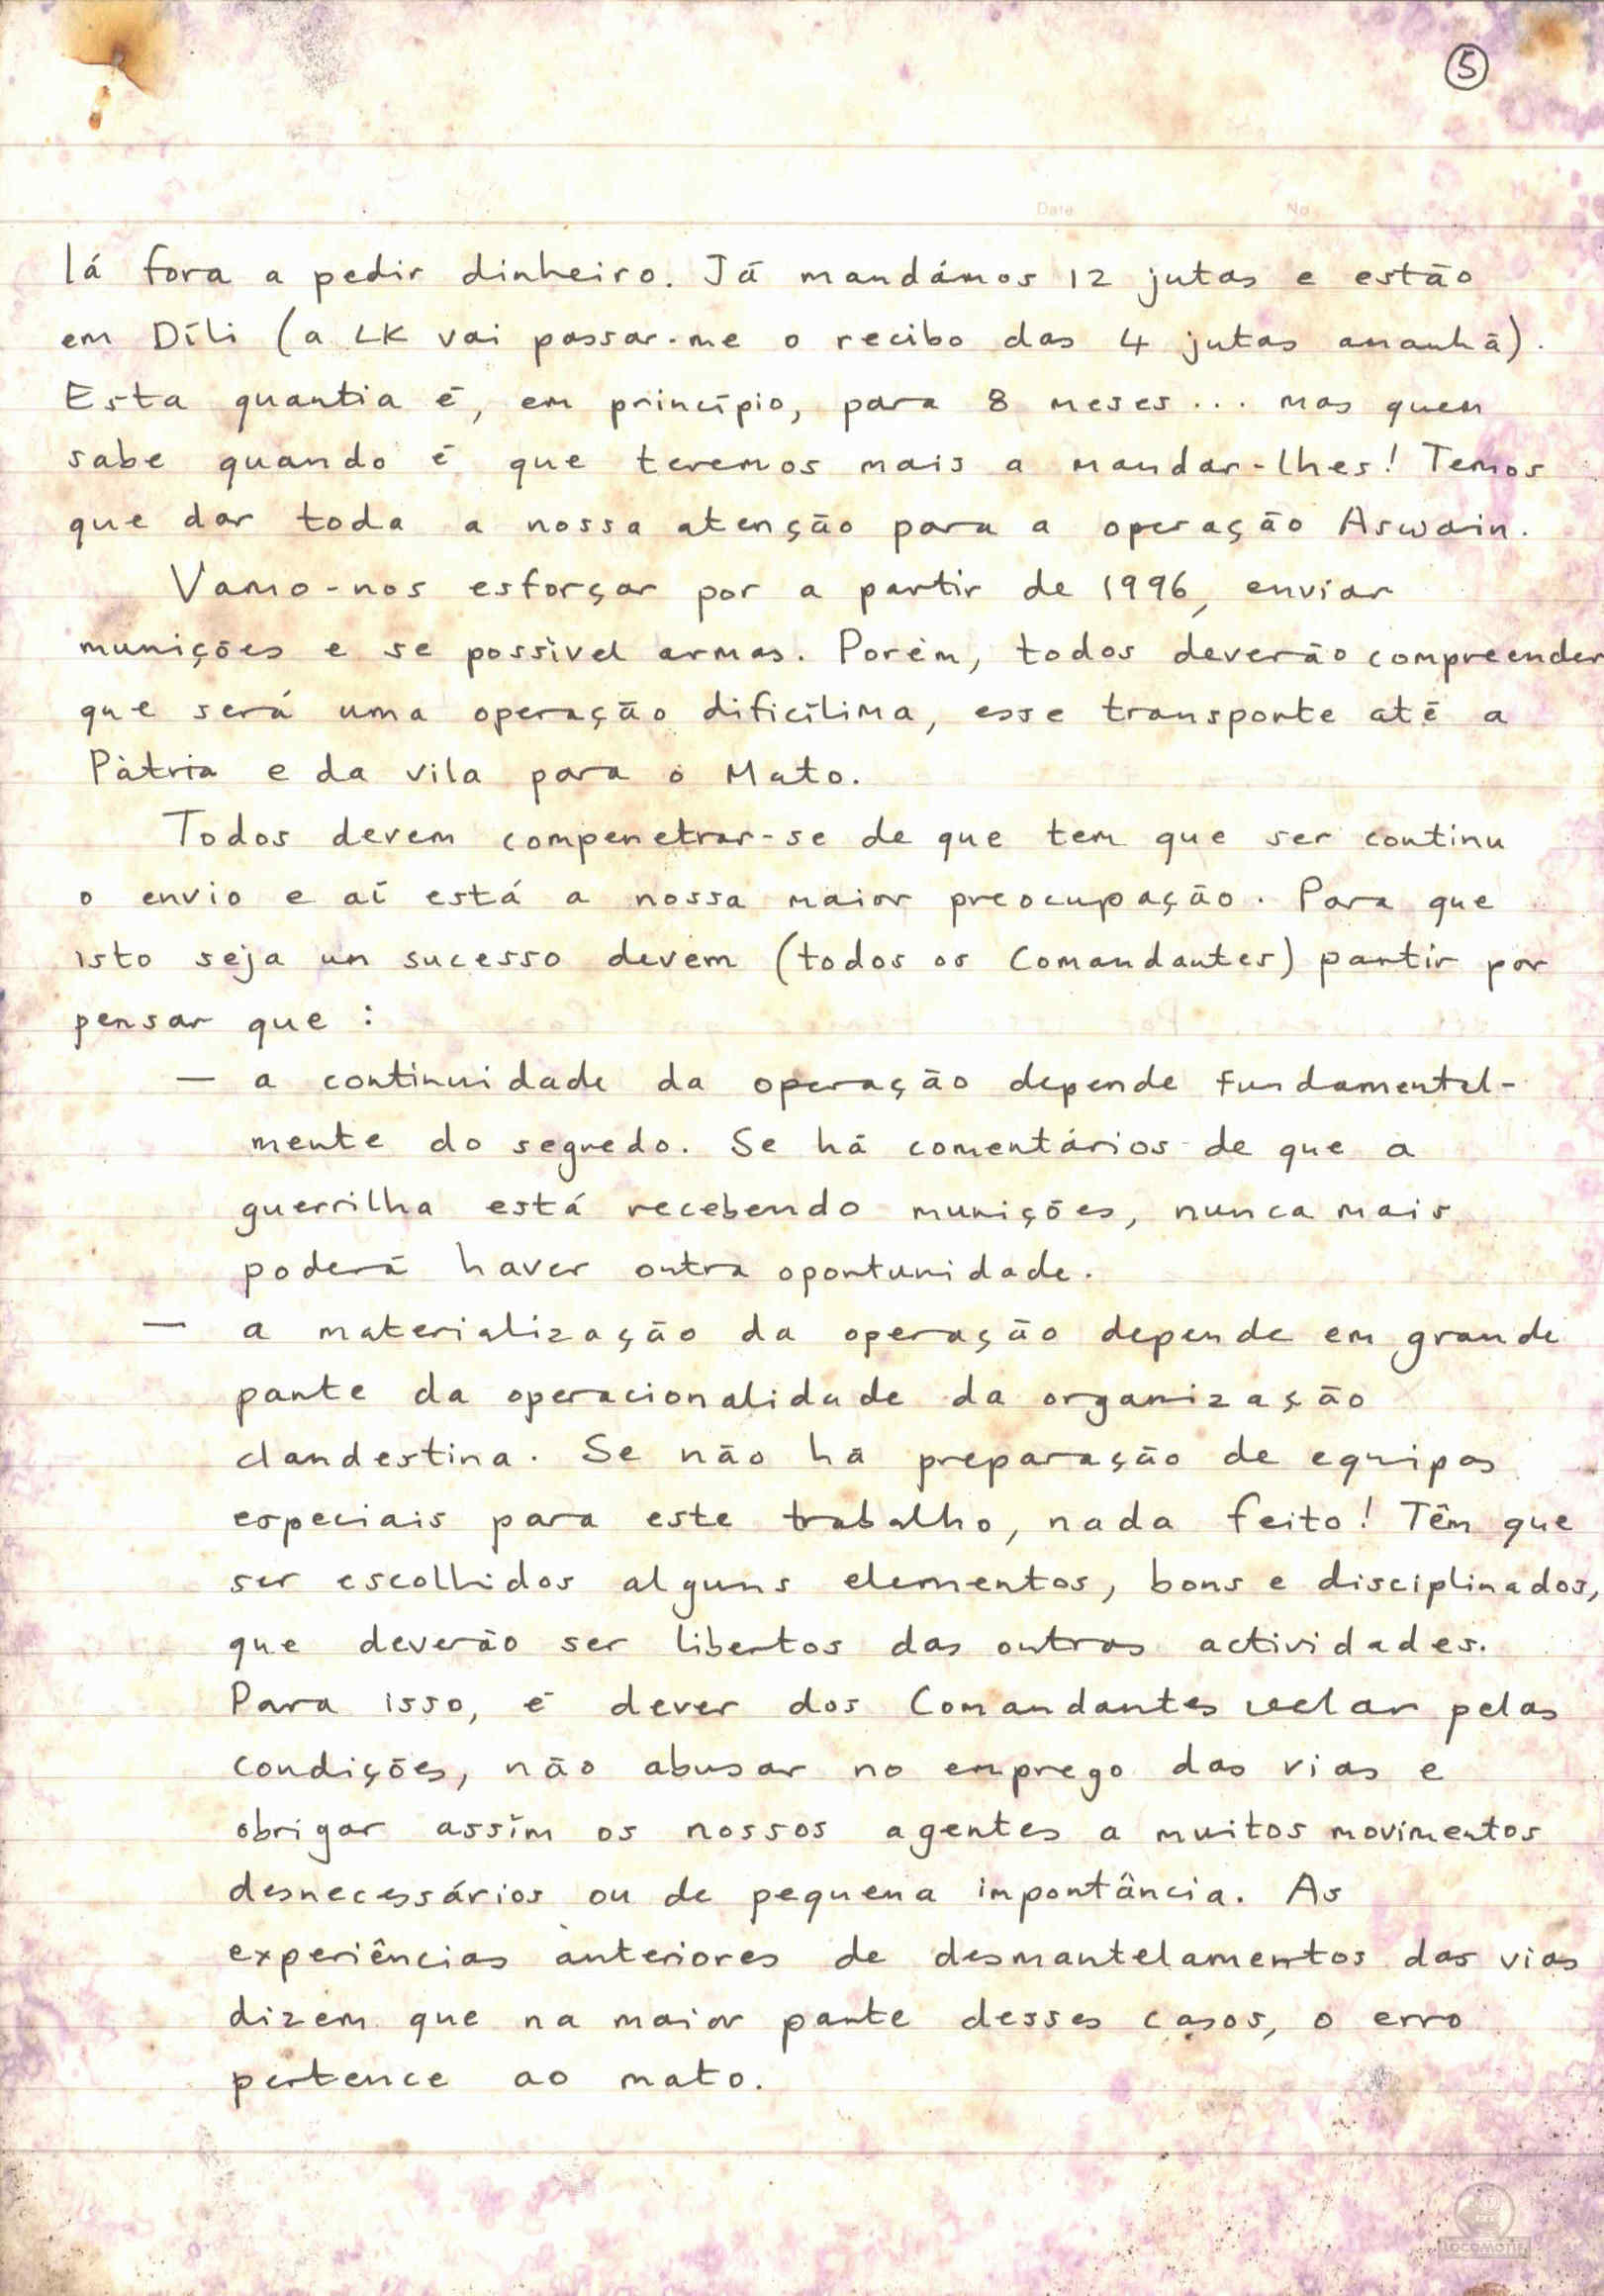 5
Date No
lá fora a pedir dinheiro. Já mandámos 12 jutas e estão
em Díli (a LK vai passar-me o recibo das 4 jutas amanhã).
Esta quantia é, em princípio, para 8 meses... mas quem
sabe quando é que teremos mais a mandar-lhes! Temos
que dar toda a nossa atenção para a operação Aswain.
Vamo-nos esforçar por a partir de 1996, enviar
munições e se possìvel armas. Porém, todos deverão compreender
que será uma operação dificílima, esse transporte até a
Pàtria e da vila para o Mato.
Todos devem compenetrar-se de que tem que ser continu
o envio e aí está a nossa maior preocupação. Para que
isto seja un sucesso devem (todos os Comandantes) partir por
pensar que :
— a continuidade da operação depende fundamental-
mente do segredo. Se há comentários de que a
guerrilha está recebendo munições, nunca mais
poderá haver outra oportunidade.
— a materialização da operação depende em grande
parte da operacionalidade da organização
clandestina. Se não há preparação de equipas
especiais para este trabalho, nada feito! Têm que
ser escolhidos alguns elementos, bons e disciplinados,
que deverão ser libertos das outras actividades.
Para isso, é dever dos Comandantes velar pelas
condições, não abusar no emprego das vias e
obrigar assim os nossos agentes a muitos movimentos
desnecessários ou de pequena importância. As
experiências anteriores de desmantelamentos das vias
dizem que na maior parte desses casos, o erro
pertence ao mato.
LOCOMOTIF